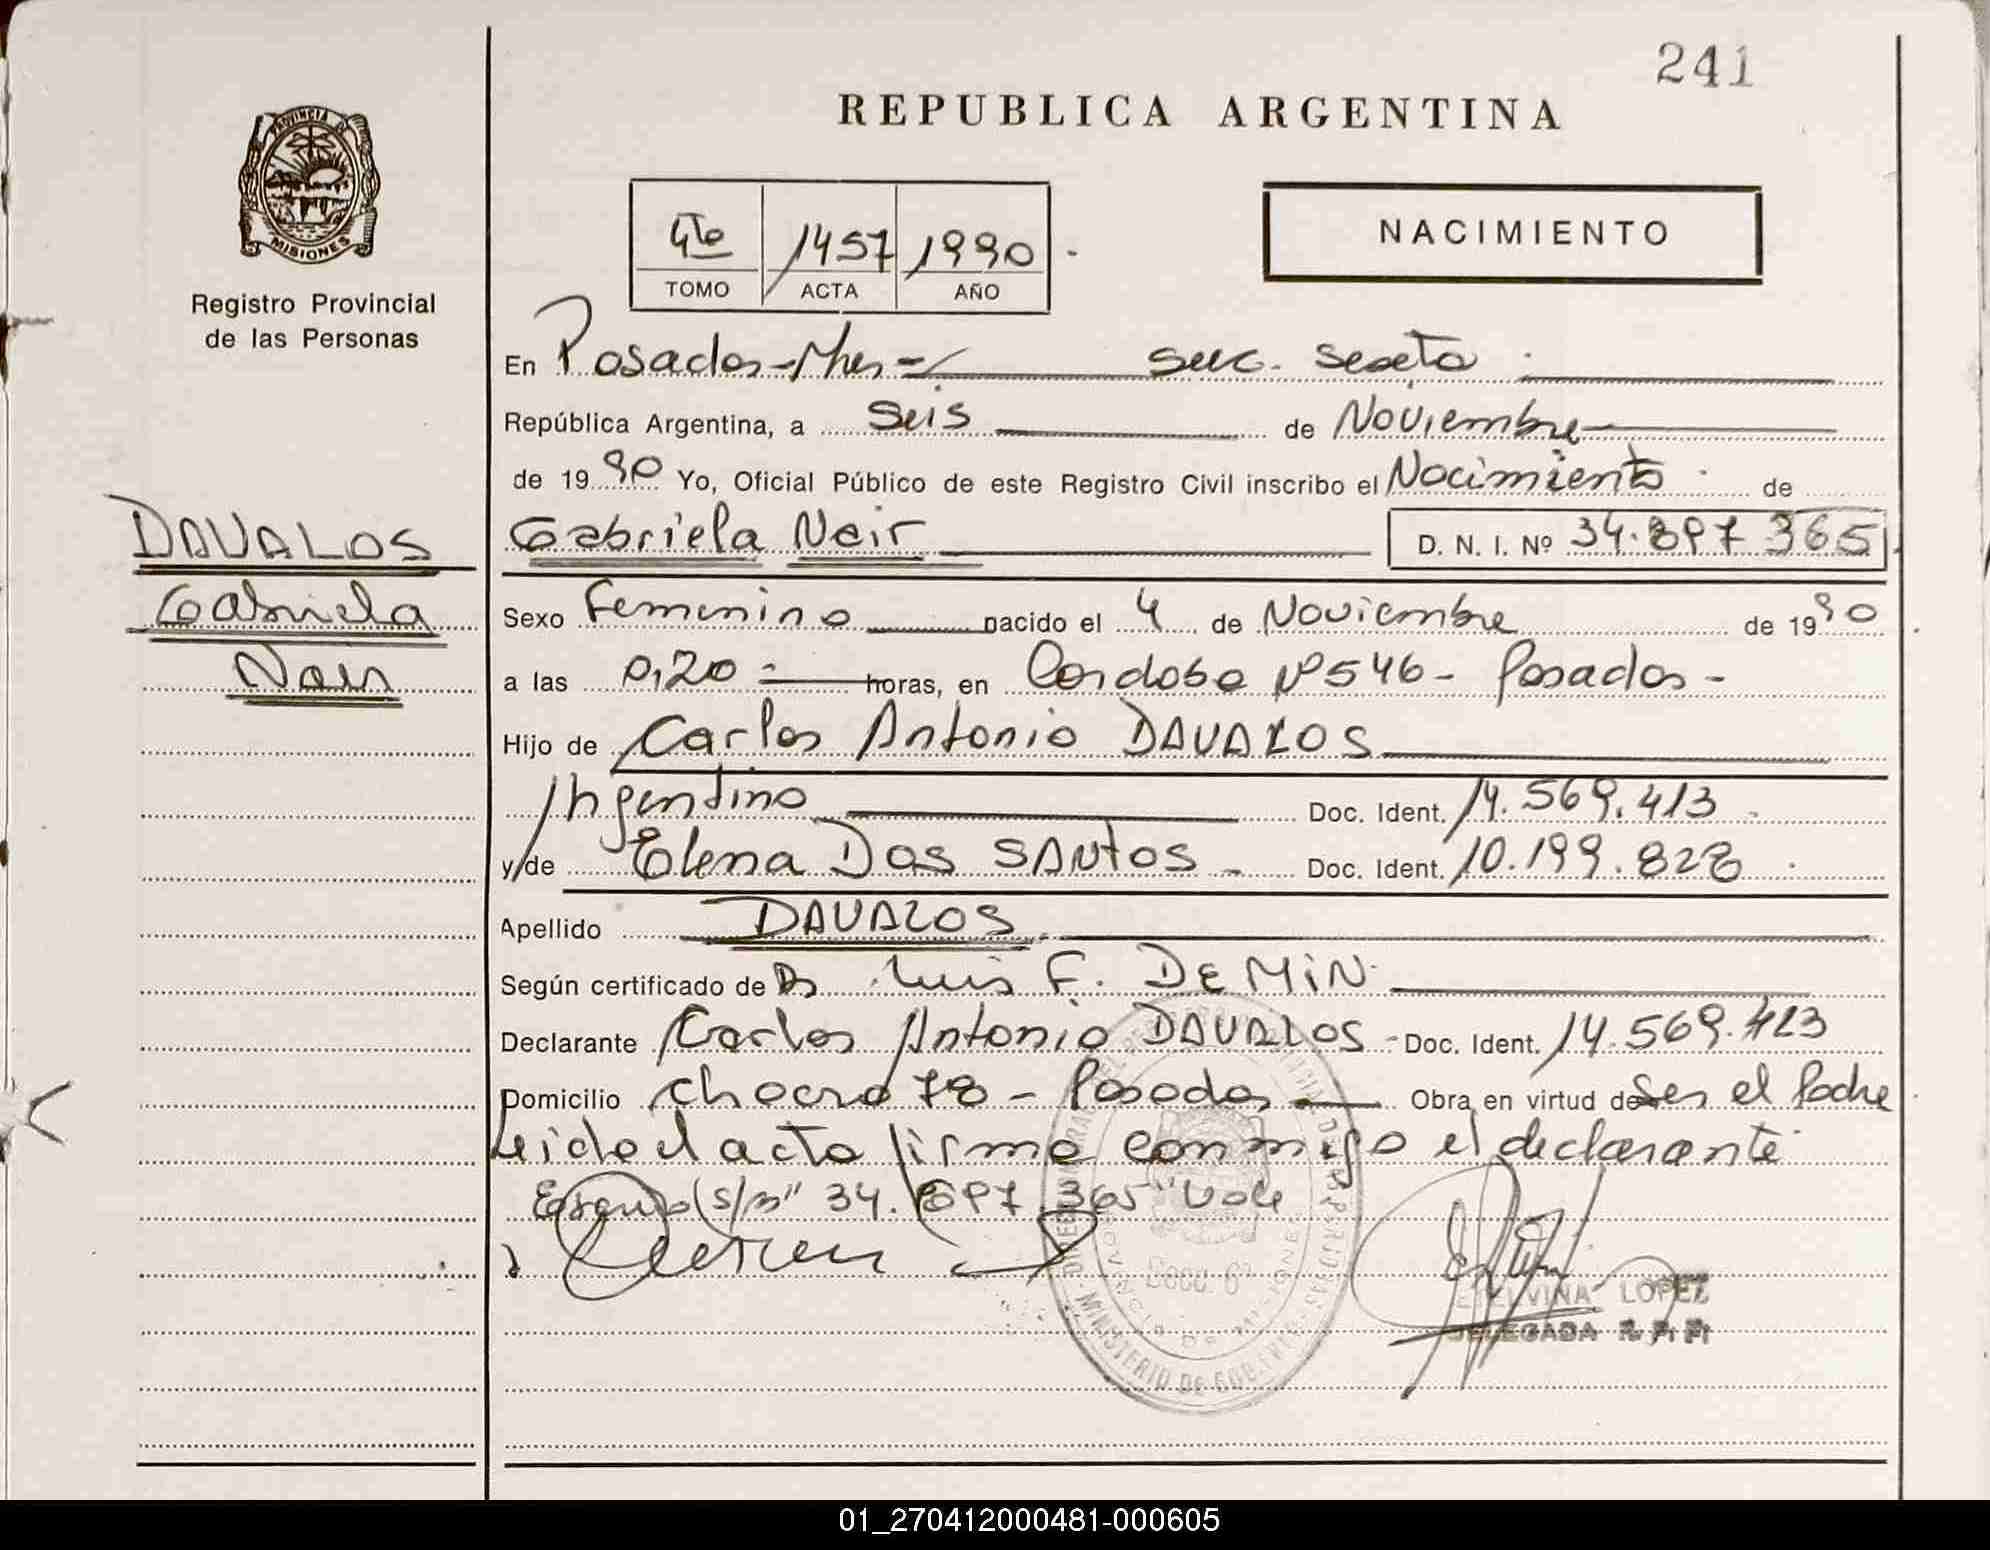 241
REPUBLICA ARGENTINA
PROVINCIA DE
MISIONES
Registro Provincial
de las Personas
4to 1457 1990
TOMO ACTA AÑO
NACIMIENTO
En Posadas - Mnes = secc. sexta
República Argentina, a seis de Noviembre
de 1990 Yo, Oficial Público de este Registro Civil inscribo el Nacimiento de
DAVALOS
Gabriela
Nair
Gabriela Nair D. N. I. Nº 34.897 365
Sexo Femenino nacido el 4 de Noviembre de 1990
a las 0,20 = horas, en Cordoba Nº 546 - Posadas -
Hijo de Carlos Antonio DAVALOS
Argentino Doc. Ident. 14.569.413
y/de Elena Dos SANtos - Doc. Ident. 10.199.828
Apellido DAVALOS
Según certificado de Dr Luis F. DEMIN
Declarante Carlos Antonio DAVALOS - Doc. Ident. 14.569.413
Domicilio chacra 78 - Posadas Obra en virtud de Ser el Padre
Leido el acta firma conmigo el declarante
34. 897 365" Vale
Secc. 6ª
MINISTERIO DE GOBIERNO
PROVINCIA DE MISIONES
ETELVINA LOPEZ
DELEGADA R. P. P.
01_270412000481-000605